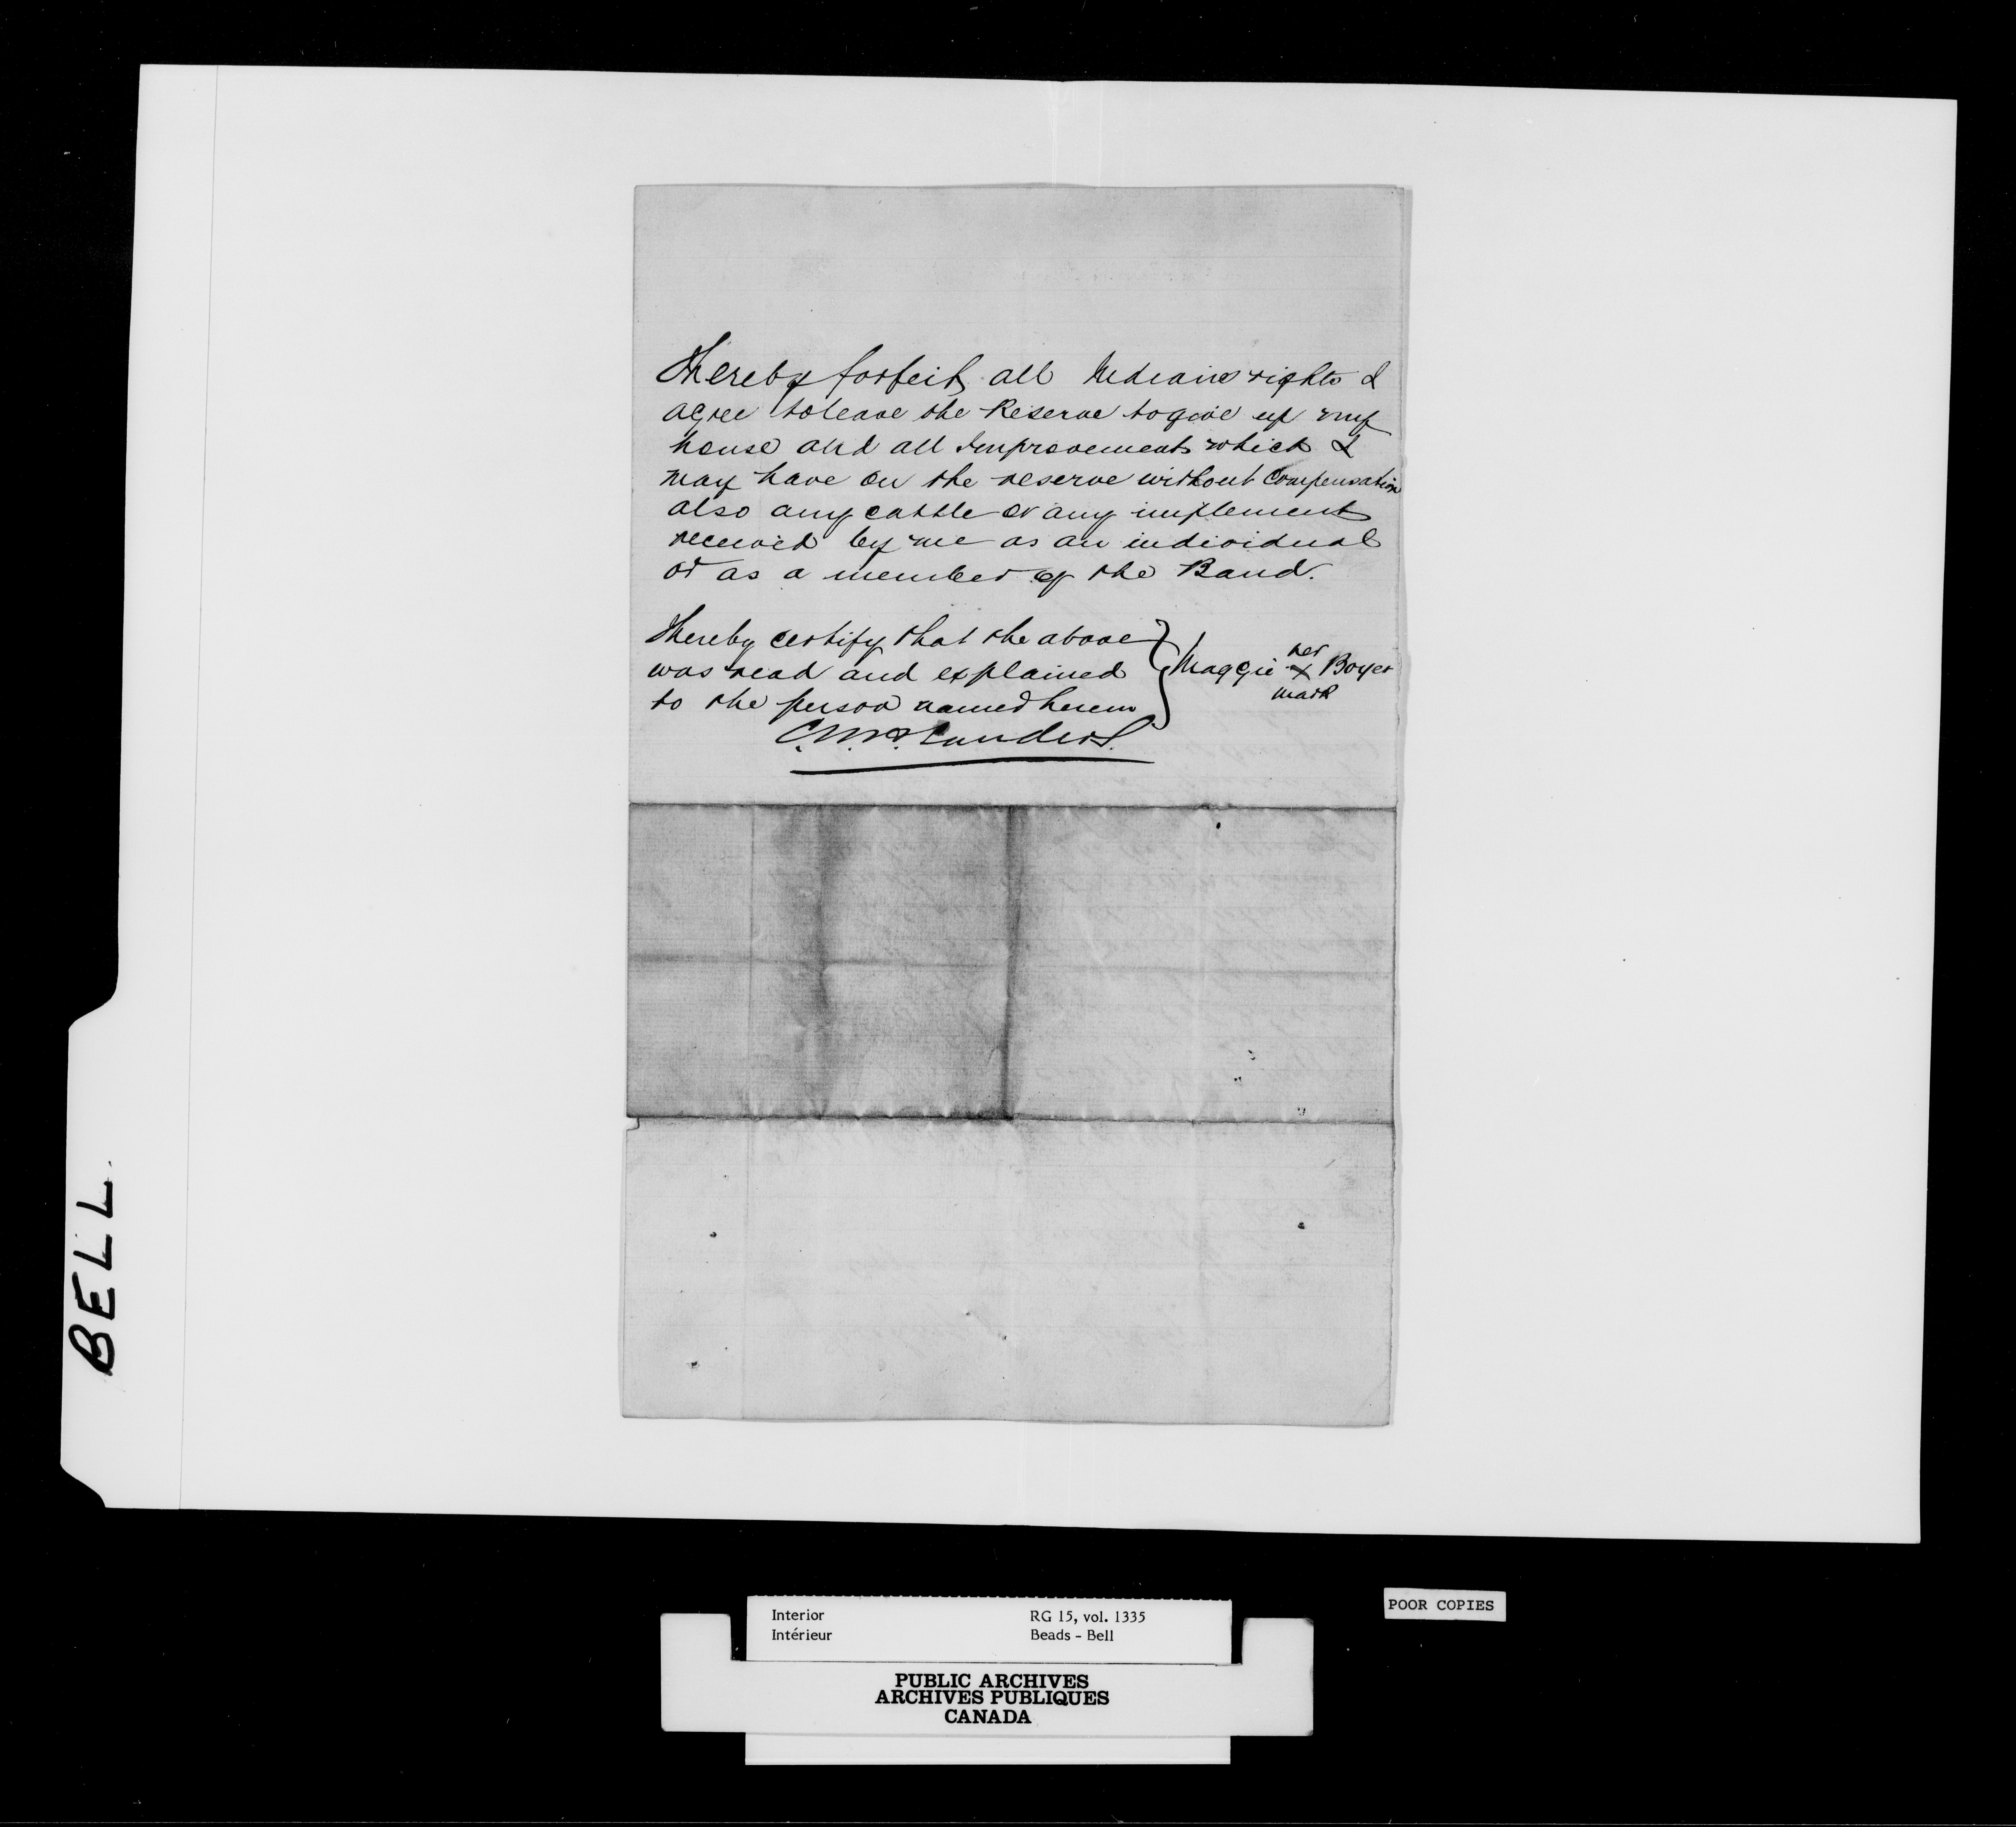 I hereby forfeit all Indians rights I
agree to leave the Reserve to give up my
house and all Improvements which I
may have on the reserve without Compensation
also any cattle or any implement
received by me as an individual
or as a member of the Band.
I hereby certify that the above
was read and explained
to the person named herein
Maggie her X mark Boyer
BELL.
POOR COPIES
Interior RG 15, vol. 1335
Intérieur Beads - Bell
PUBLIC ARCHIVES
ARCHIVES PUBLIQUES
CANADA